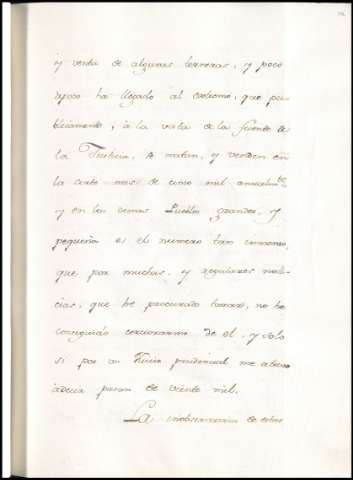 y venta de algunas terneras, y poco
apoco ha llegado al extremo, que pu-
blicamente, à la vista de la fuente de
la Justicia, se matan, y venden en
la corte mas de cinco mil anualmte
y en los demas Pueblos grandes, y
pequeños es el numero tan inmenso,
que por muchas, y regulares noti-
cias, que he procurado tomar, no he
conseguido cerciorarme de el, y solo
si por un Juicio prudencial me atrevo
à decir pasan de veinte mil.
La inobservancia de estas